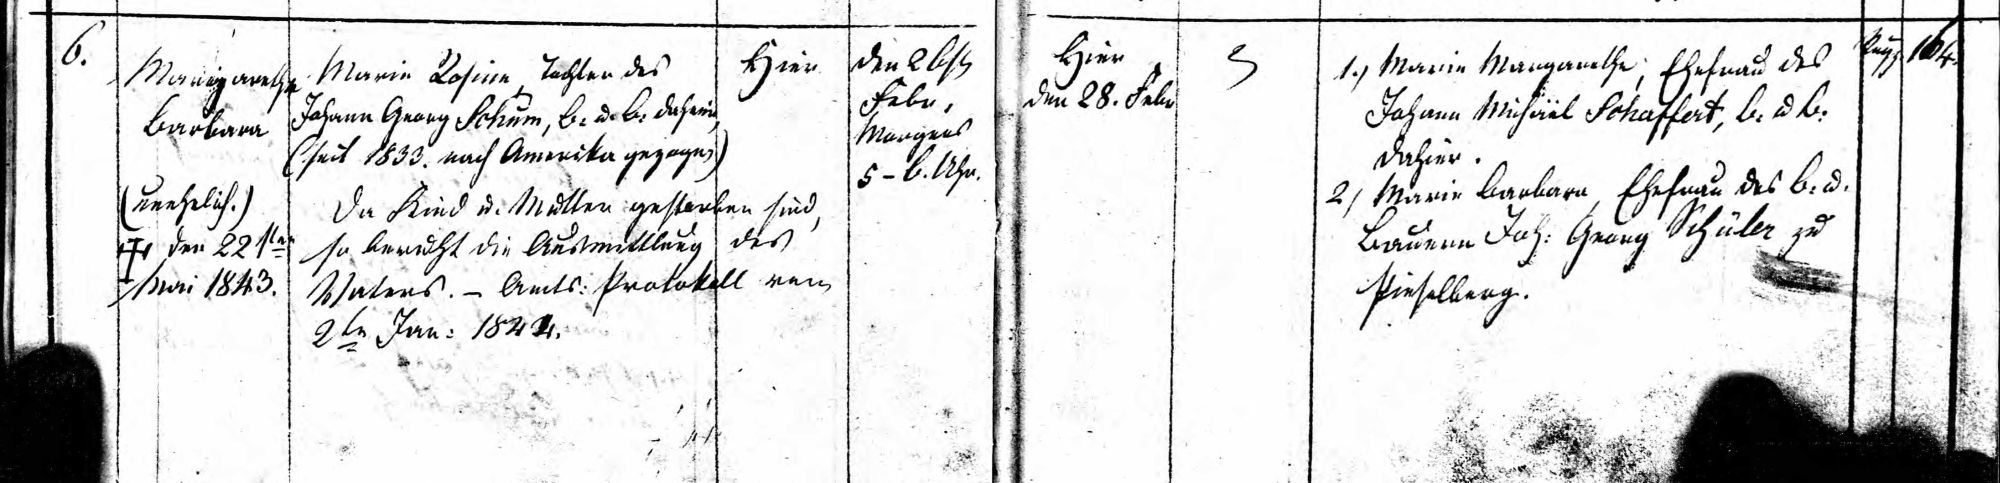 6.
Margarethe
Barbara
(unehelich.)
† den 22sten
Mai 1843.
Marie Rosine, Tochter des
Johann Georg Schum, B. u. B. dahier,
(seit 1833. nach Amerika gezogen)
Da Kind u. Mutter gestorben sind,
so beruht die Ausmittlung des
Vaters. – Amts: Protokoll vom
2ten Jan: 1844.
Hier
den 26sten
Febr.
Morgens
5 – 6. Uhr.
Hier
den 28. Febr
1.) Marie Margarethe, Ehefrau des
Johann Michael Schaffert, B. u B.
dahier.
2) Marie Barbara, Ehefrau des B. u.
Bauern Joh: Georg Schüler zu
164.